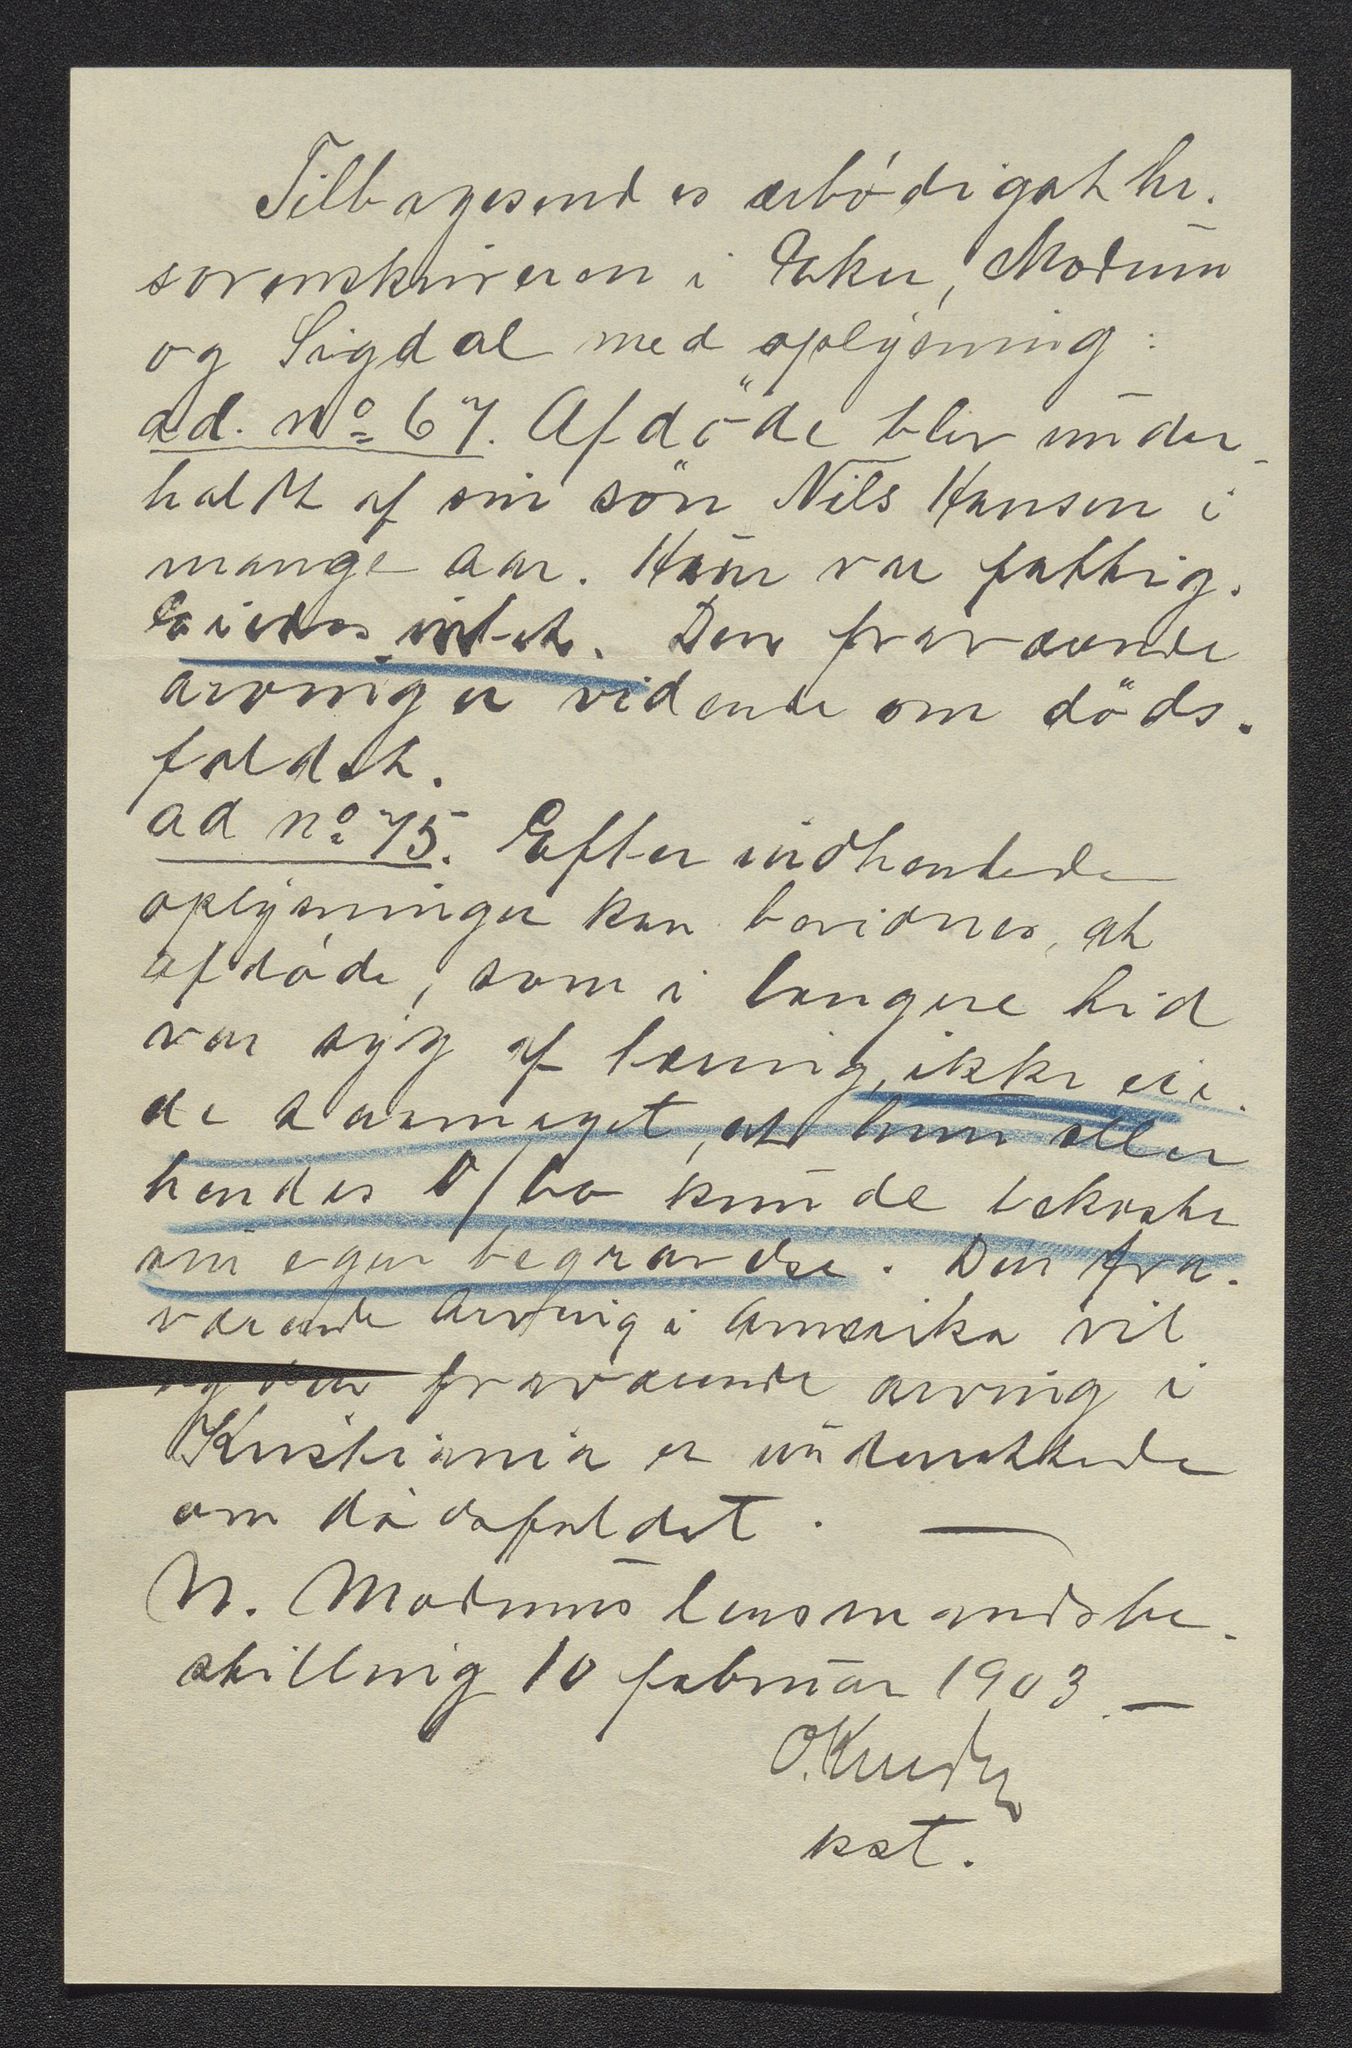 Tilbagesendes ærbødigst hr.
sorenskriveren i Eker, Modum
og Sigdal med oplysning:
ad. no 67. Afdöde blev under-
holdt af sin sön Nils Hansen i
mange aar. Han var fattig.
Eiedes intet. Den fraværende
arvinger vidende om döds-
faldet.
ad no 75. Efter indhentede
oplysninger kan bevidnes, at
afdøde, som i længere tid
var syg af tæring, ikke eie-
de saameget, at hun eller
hendes D/bo kunde bekoste
sin egen begravelse. Den fra-
værende arving i Amerika vil
og den fraværende arving i
Kristiania er underrettede
om dødsfaldet. —
N. Modums lensmandsbe-
stilling 10 februar 1903 —
kst.